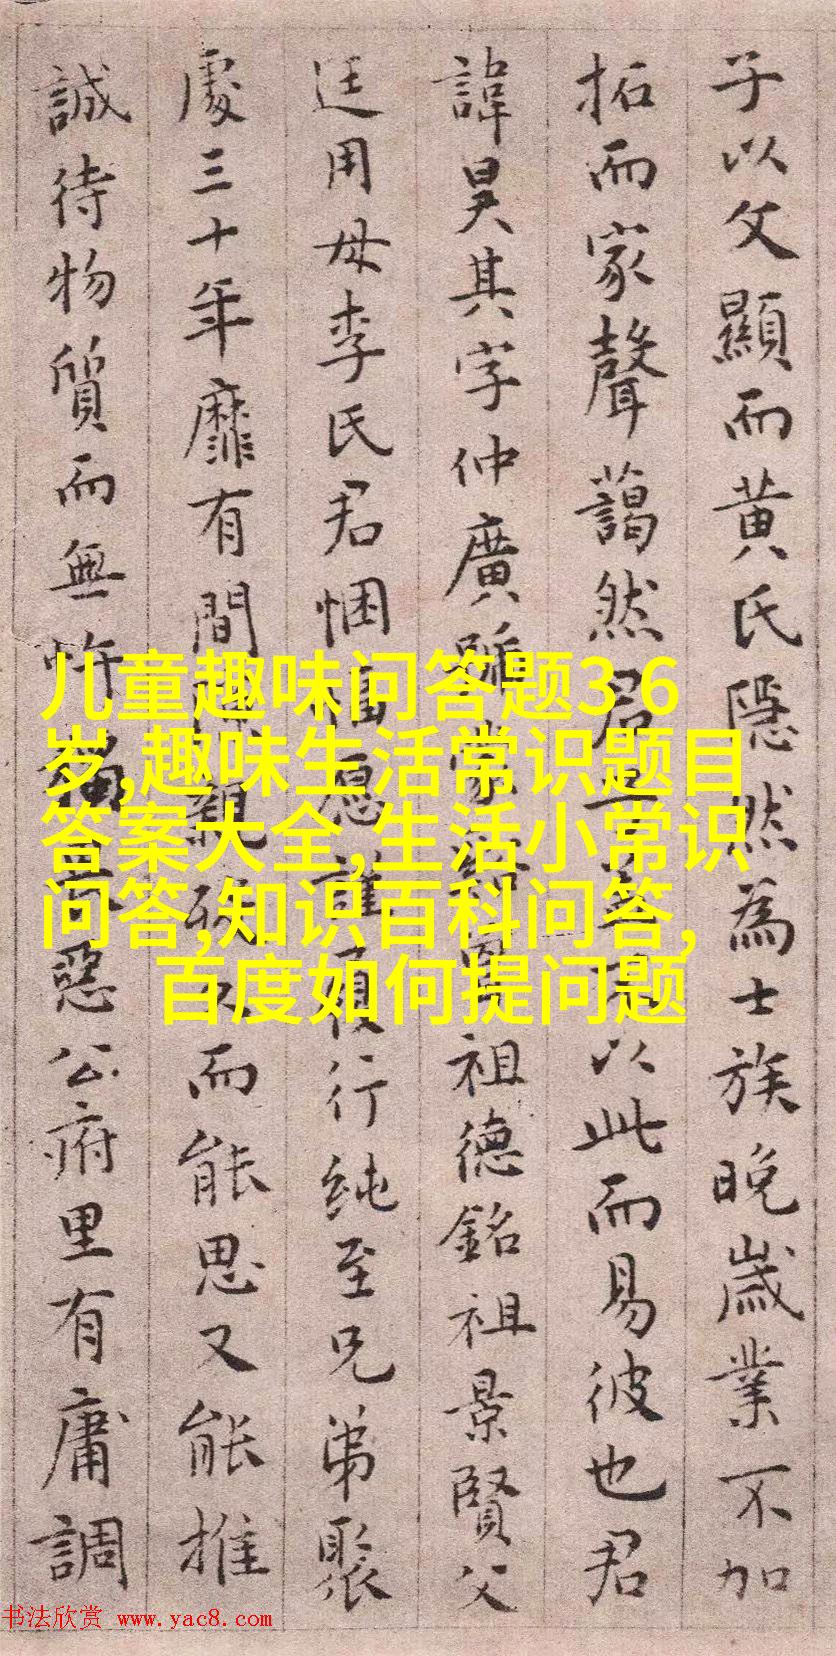 子以父顯而黄氏隱然為士族晚歲業不加
拓而家聲藹然君以此而易彼也君
諱昊其字仲廣號蒙祖德銘祖景賢父
廷用母李氏君悃愊愿謹履行純至兄弟聚
處三十年靡有間能思又能推
誠待物質而無忤惡公府里有庸調
儿童趣味问答题3-6
岁,趣味生活常识题目
答案大全,生活小常识
问答,知识百科问答,
百度如何提问题
书法欣赏 www.yac8.com